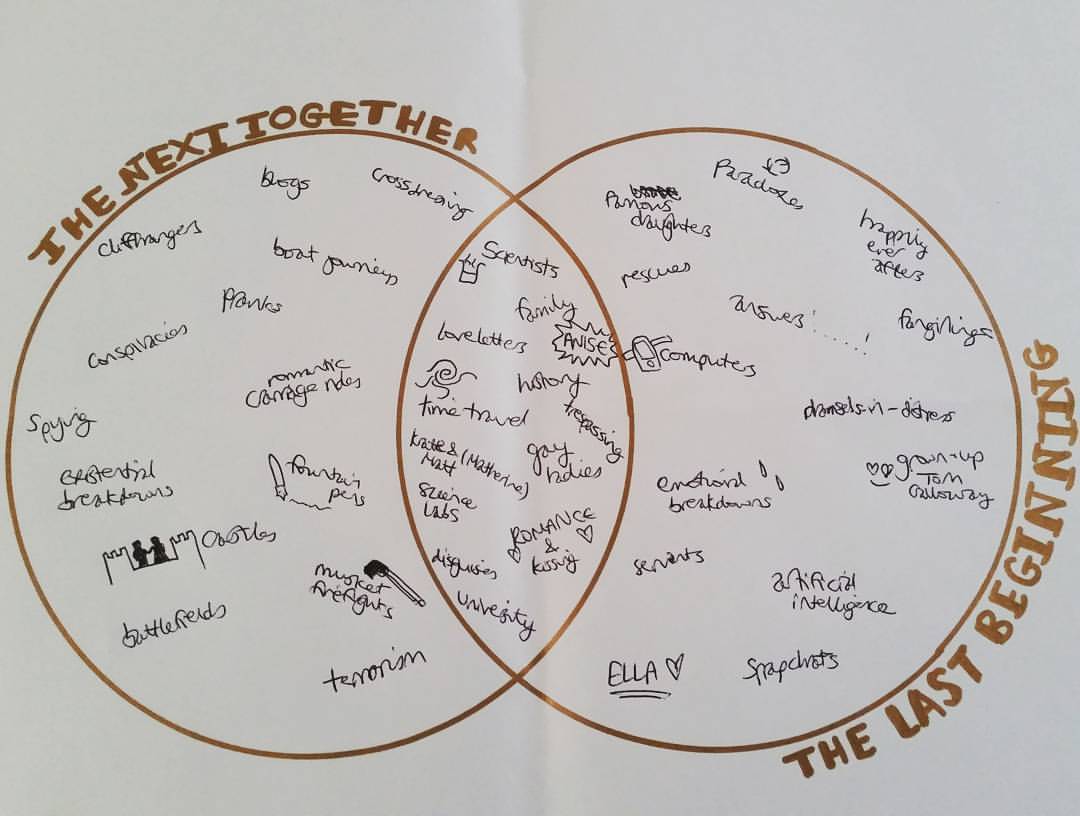 THE NEXT TOGETHER
blogs
crossdressing
cliffhangers
boat journeys
Pranks
conspiracies
romantic
carriage rides
Spying
existential
breakdowns
fountain
pens
castles
musket
firefights
battlefields
terrorism
Scientists
family
loveletters
ANISE
history
time travel
trespassing
Kate &
Matt
(Matherine)
gay
ladies
Science
Labs
ROMANCE
&
kissing
disguises
university
THE LAST BEGINNING
Paradoxes
famous
daughters
happily
ever
afters
rescues
answers!.....!
computers
damsels-in-distress
grown-up
Tom
Galloway
emotional
breakdowns
servants
artificial
intelligence
ELLA
Snapchats